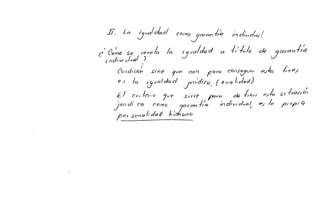 II. La igualdad como garantía individual
¿Cómo se revela la igualdad a título de garantía
individual?
Condición sine que non para conseguir estos fines
es la igualdad jurídica. (
El criterio que sirve para definir esta situación
jurídica como garantía individual, es la propia
personalidad humana